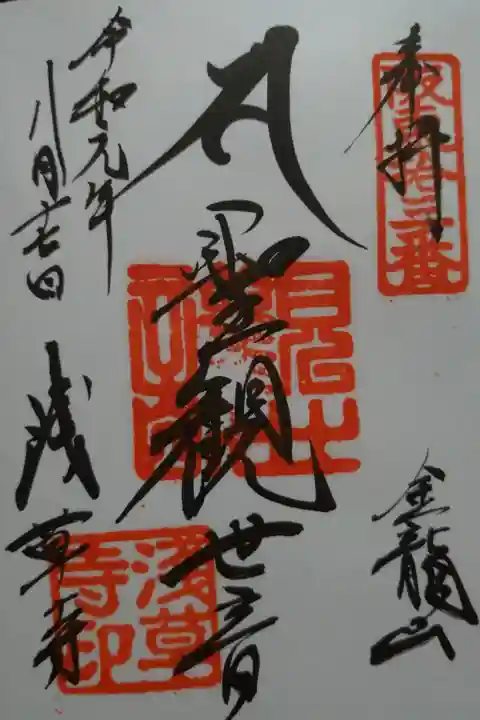 奉拝
坂東拾三番
金龍山
聖観世音
令和元年
八月十七日
浅草寺
淺草
寺印